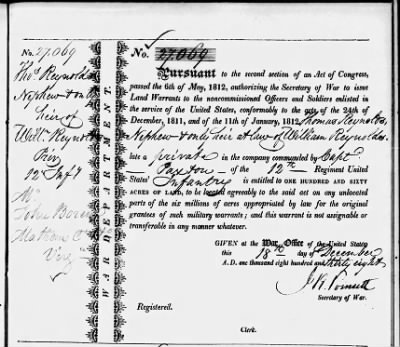 No. 27.069
Thos. Reynolds
Nephew & only
heir of
Will. Reynolds
Priv
12 Inf'y
John
Mathews C
WAR DEPARTMENT.
No. 27.069
Pursuant to the second section of an Act of Congress,
passed the 6th of May, 1812, authorizing the Secretary of War to issue
Land Warrants to the noncommissioned Officers and Soldiers enlisted in
the service of the United States, conformably to the acts of the 24th of
December, 1811, and of the 11th of January, 1812, Thomas Reynolds,
Nephew & only heir at law of William Reynolds
late a private in the company commanded by Capt.
Paxton of the 12th Regiment United
States' Infantry is entitled to ONE HUNDRED AND SIXTY
ACRES OF LAND, to be located agreeably to the said act on any unlocated
parts of the six millions of acres appropriated by law for the original
grantees of such military warrants; and this warrant is not assignable or
transferable in any manner whatever.
GIVEN at the War Office of the United States
this 18th day of December
A. D. one thousand eight hundred and thirty eight
J R Poinsett
Secretary of War.
Registered.
Clerk.